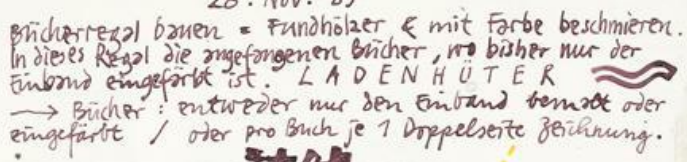 28. Nov. 89
Bücherregal bauen = Fundhölzer & mit Farbe beschmieren.
In dieses Regal die angefangenen Bücher, wo bisher nur der
Einband eingefärbt ist. LADENHÜTER
→ Bücher : entweder nur den Einband bemalt oder
eingefärbt / oder pro Buch je 1 Doppelseite Zeichnung.